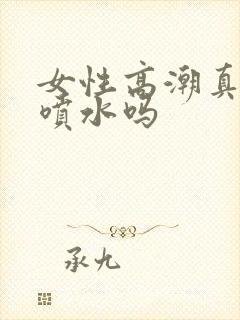 女性高潮真
噴水吗
承九